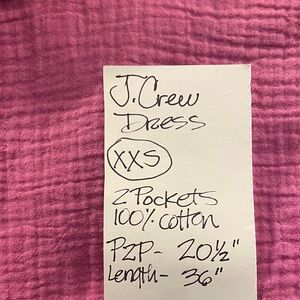 J.Crew
Dress
XXS
2 Pockets
100% cotton
P2P- 20½"
Length- 36"